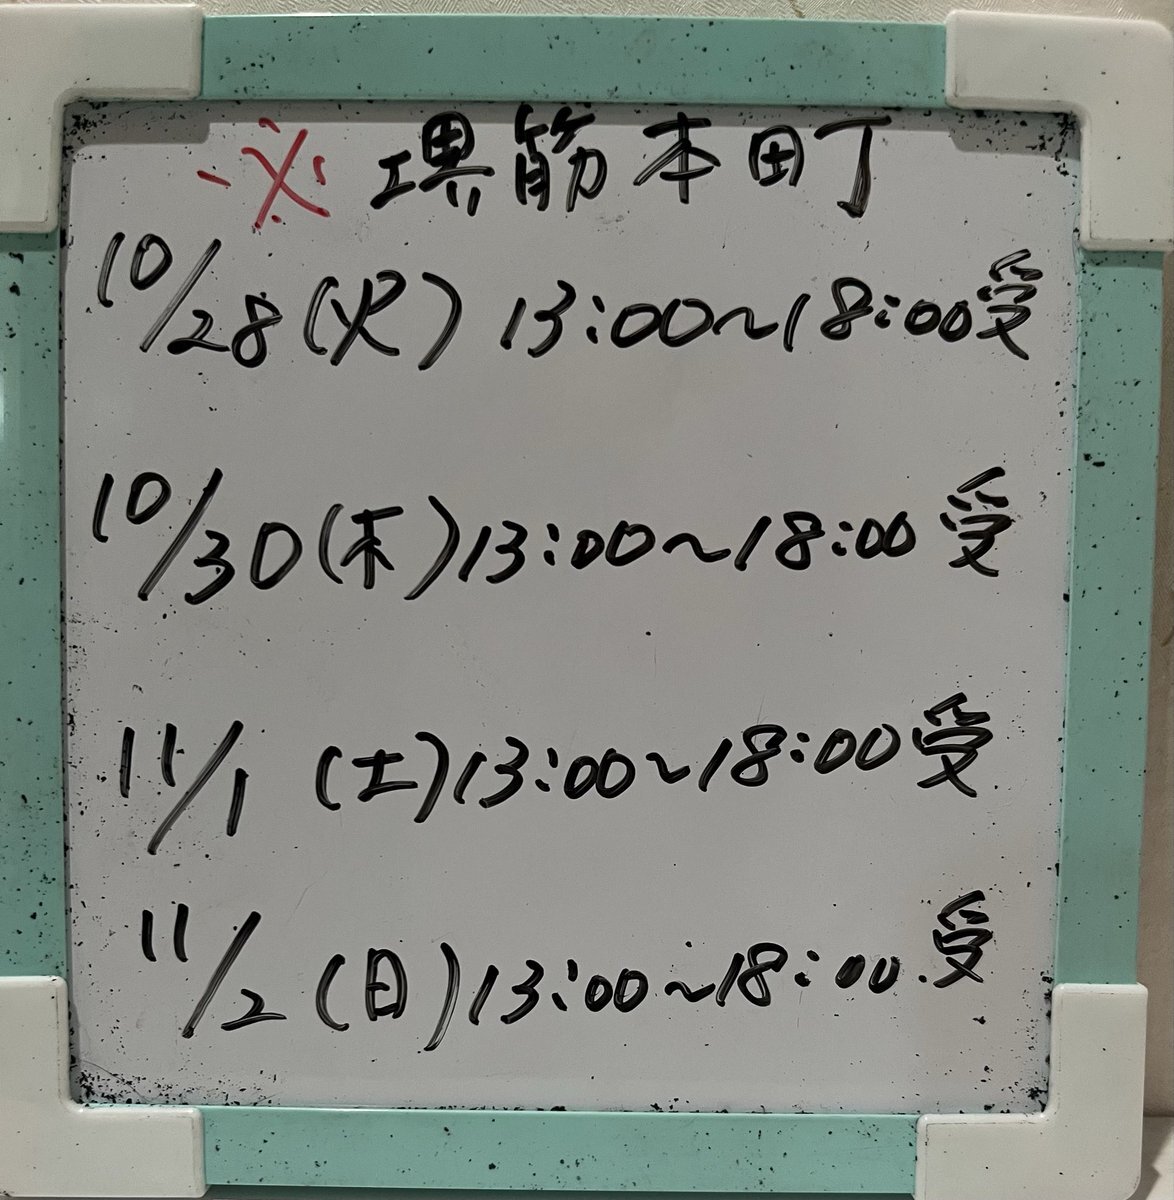 ※ 堺筋本町
10/28(火) 13:00〜18:00受
10/30(木)13:00〜18:00 受
11/1 (土)13:00〜18:00受
11/2(日)13:00〜18:00.受